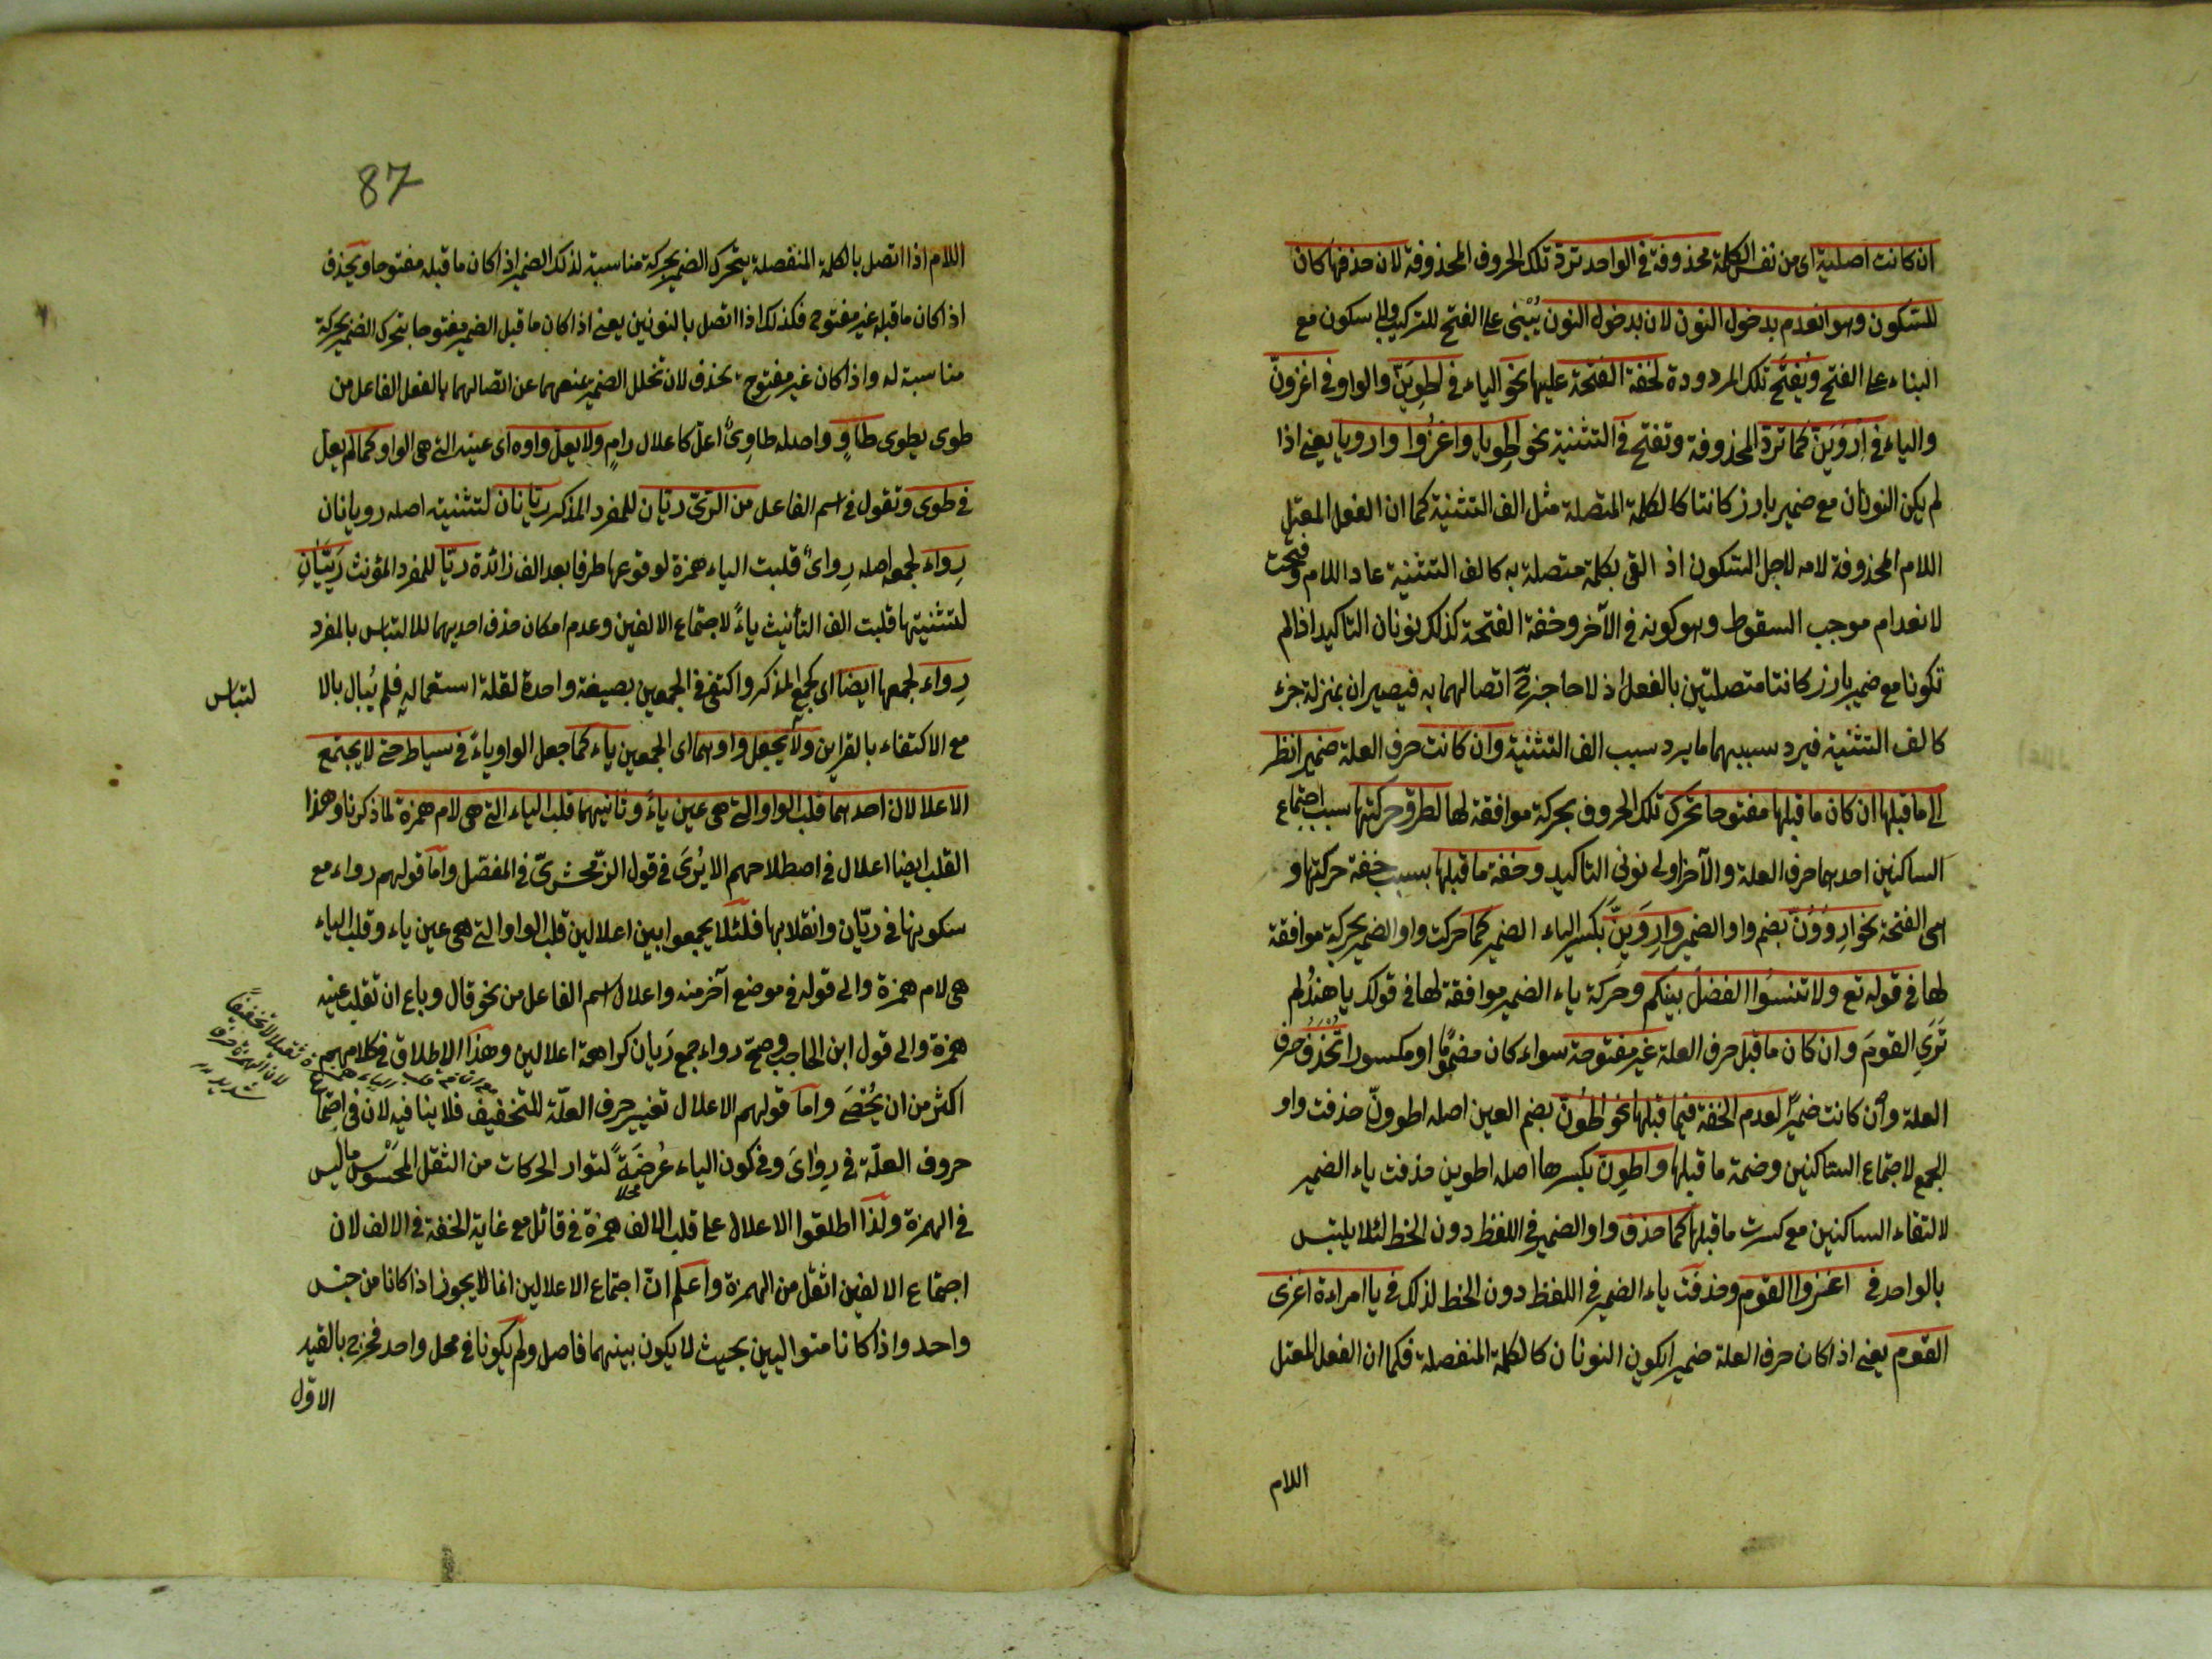 ان كانت اصلية اى من نفس الكلمة محذوفة فى الواحد تردّ تلك الحروف المحذوفة لان حذفها كان
للسّكون وهو انعدم بدخول النون لان بدخول النون يُبْنى على الفتح للتركيب ولا سكون مع
البناء على الفتح وتُفتَح تلك المردودة لخفة الفتحة عليها نحو الياء فى اطوِيَنّ والواو فى اغزونّ
والياء فى اِروَيَنّ كما تردّ المحذوفة وتفتح فى التثنية نحو اطوِيا واغزُوا وارويا يعنى اذا
لم يكن النونان مع ضمير بارز كانتا كالكلمة المتصلة مثل الف التثنية كما ان الفعل المعتل
اللام المحذوفة لامه لاجل السّكون اذ القى بكلمة متصلة به كالف التثنية عاد اللام وفتحت
لانعدام موجب السقوط وهو كونه فى الآخر وخفة الفتحة كذلك نونان التاكيد اذا لم
تكونا مع ضمير بارز كانتا متصلتين بالفعل اذ لا حاجز عن اتصالهما به فيصيران بمنزلة جزء
كالف التثنية فيرد سببهما ما يرد سبب الف التثنية وان كانت حرف العلة ضمير انظر
الى ما قبلها ان كان ما قبلها مفتوحا تحرك تلك الحروف بحركة موافقة لها لطرو حركتها سبب اجتماع
الساكنين احدهما حرف العلة والآخر اولى نونى التاكيد وخفة ما قبلها بسبب خفة حركتها و
هى الفتحة نحو اروَوُنّ بضم واو الضمير واروَيِنّ بكسر الياء الضمير كما حركت واو الضمير بحركة موافقة
لها فى قوله تع ولا تنسَوُا الفضلَ بينكم وحركة ياء الضمير موافقة لها فى قولك يا هندُ لم
تَرَىِ القومَ وان كان ما قبل حرف العلة غير مفتوحة سواء كان مضمومًا او مكسورا تُحْذَفُ حرف
العلة وان كانت ضميرًا لعدم الخفة فيما قبلها نحو اطوُنّ بضم العين اصله اطوونّ حذفت واو
الجمع لاجتماع الساكنين وضمة ما قبلها واطوِنّ بكسرها اصله اطوين حذفت ياء الضمير
لالتقاء الساكنين مع كسرت ما قبلها كما حذف واو الضمير فى اللفظ دون الخط لئلا يلتبس
بالواحد فى اغزوا القوم وحذفت ياء الضمير فى اللفظ دون الخط لذلك فى يا امراءة اغزى
القوم يعنى اذا كان حرف العلة ضميرا يكون النونان كالكلمة المنفصلة فكما ان الفعل المعتل
اللام
87
اللام اذا اتصل بالكلمة المنفصلة يتحرك الضمير بحركة مناسبة لذلك الضمير اذ اكان ما قبله مفتوحا ويحذف
اذا كان ما قبله غير مفتوح فكذلك اذا اتصل بالنونين يعنى اذا كان ما قبل الضمير مفتوحا يتحرك الضمير بحركة
مناسبة له واذا كان غير مفتوح يحذف لان تخلل الضمير عنعهما عن اتصالهما بالفعل الفاعل من
طوى يطوى طاوٍ واصله طاوِىٌ اعلّ كاعلال رامٍ ولا يعلّ واوه اى عينه التى هى الواو كما لم يعل
فى طوى وتقول فى اسم الفاعل من الرّىّ ريّان للمفرد المذكر ريّانان لتثنيته اصله رويانان
رِواء لجمعه اصله رِواىٌ قلبت الياء همزة لوقوعها طرفا بعد الف زائدة ريّا للمفرد المؤنث رَيّيَانِ
لتثنيتها قلبت الف التأنيث ياءً لاجتماع الالفين وعدم امكان حذف احديهما للالتباس بالمفرد
رِواء لجمعها ايضا اى كجمع المذكر واكتفى فى الجمعين بصيغة واحدة لقلة استعماله فلم يُبال بالا
لتباس
مع الاكتفاء بالقراين ولا يجعل واوهما اى الجمعين ياء كما جعل الواو ياءً فى سياط حتى لا يجتمع
الاعلالان احدهما قلب الواو التى هى عين ياءً وثانيهما قلب الياء التى هى لام همزة لما ذكرنا وهذا
القلب ايضا اعلال فى اصطلاحهم الا يُرَى فى قول الزّمخشرىّ فى المفصّل واما قولهم رواء مع
سكونها فى ريّان وانقلابها فلئلا يجمعوا بين اعلالين قلب الواو التى هى عين ياء وقلب الياء
هى لام همزة والى قوله فى موضع آخر منه واعلال اسم الفاعل من نحو قال وباع ان تقلب عينه
همزة والى قول ابن الحاجب وصحّ رواء جمع رَيان كراهة اعلالين وهذا الاطلاق فى كلامهم
اكثر من ان يُحْصَى واما قولهم الاعلال تغيير حرف العلّة للتخفيف فلا ينافيه لان فى اجتماع
حروف العلّة فى رِواىَ وفى كون الياء عُرضَةً لتوارد الحركات من الثقل المحسوس ما ليس
فى الهمزة ولذا اطلقوا الاعلال على قلب الالف همزة فى قائل مع غاية الخفة فى الالف لان
اجتماع الالفين اثقل من الهمزة واعلم انّ اجتماع الاعلالين انما لا يجوز اذا كانا من جنس
واحد واذا كانا متواليين بحيث لا يكون بينهما فاصل ولم يكونا فى محل واحد فخرج بالقيد
الاوّل